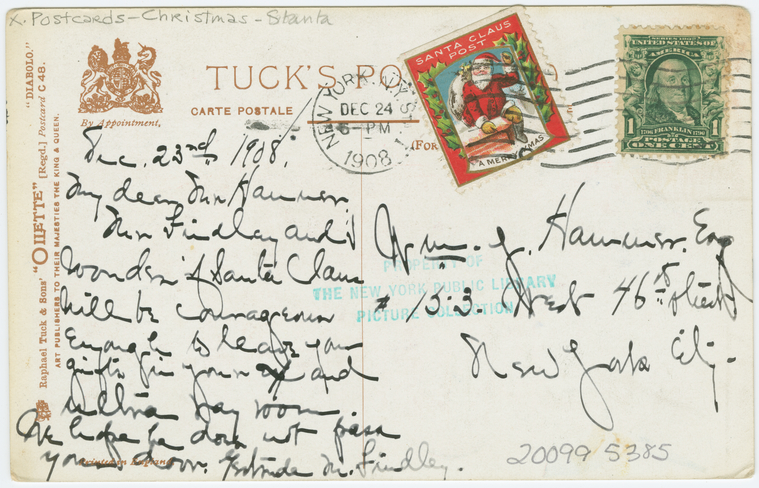 x. Postcards - Christmas - Stanta
TUCK'S PO
CARTE POSTALE
By Appointment.
(For
"DIABOLO."
Raphael Tuck & Sons' "OILETTE" [Regd.] Postcard C 48.
ART PUBLISHERS TO THEIR MAJESTIES THE KING & QUEEN.
NEW YORK, N.Y.
DEC 24
6-PM
1908
SANTA CLAUS
POST
A MERRY XMAS
SERIES 1902
UNITED STATES OF
AMERICA
1 1706 FRANKLIN 1790 1
POSTAGE
ONE CENT
Dec. 23rd 1908.
My dear Mr Hammer
Mr Findley and I
wonder if Santa Claus
will be courageous
enough to leave you
gifts in your and
ultra ray room.
We hope he does not pass
your door. Gertrude M. Findley.
Wm. J. Hammer. Esq
# 133 West 46th Street
New York City.
PROPERTY OF
THE NEW YORK PUBLIC LIBRARY
PICTURE COLLECTION
20099 5385
Printed in England